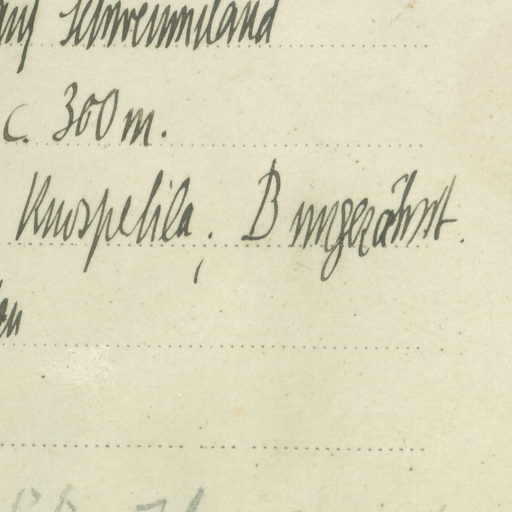 auf Schwemmland
c. 300 m.
Knospe lila, B ungezähnt.
en